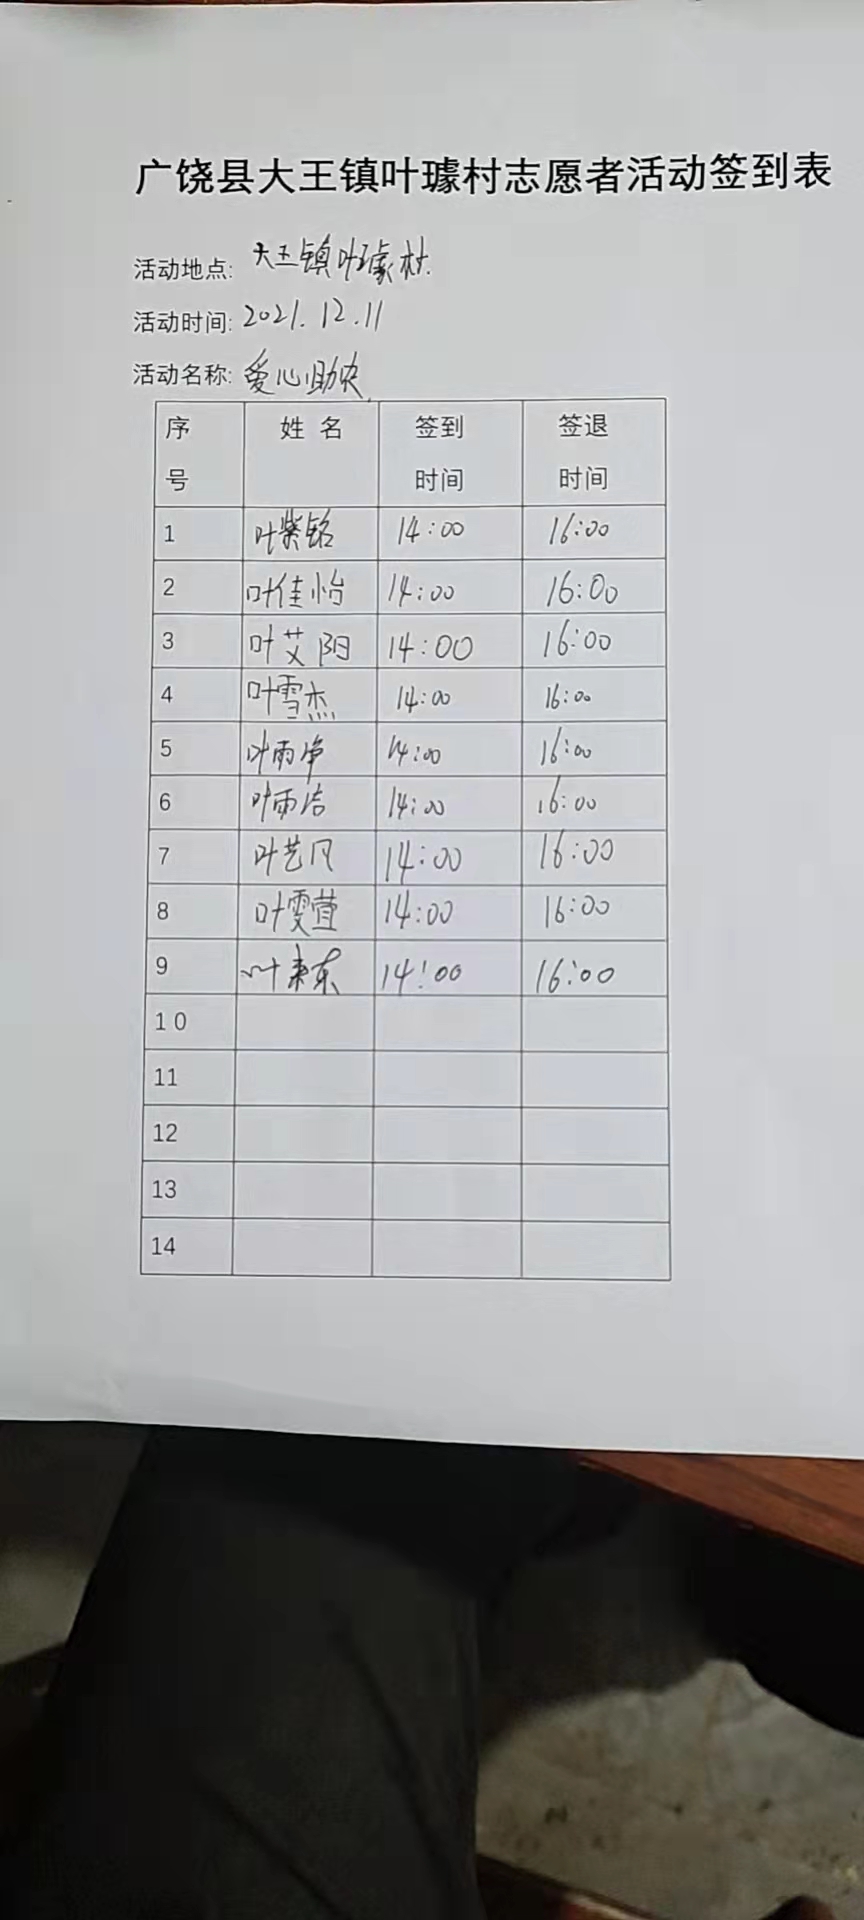 广饶县大王镇叶璩村志愿者活动签到表
活动地点: 大王镇叶璩村.
活动时间: 2021.12.11
活动名称: 爱心助农
序号 姓名 签到时间 签退时间
1 叶紫铭 14:00 16:00
2 叶佳怡 14:00 16:00
3 叶艾阳 14:00 16:00
4 叶雪杰 14:00 16:00
5 叶雨净 14:00 16:00
6 叶雨洁 14:00 16:00
7 叶艺风 14:00 16:00
8 叶雯萱 14:00 16:00
9 叶来东 14:00 16:00
10
11
12
13
14